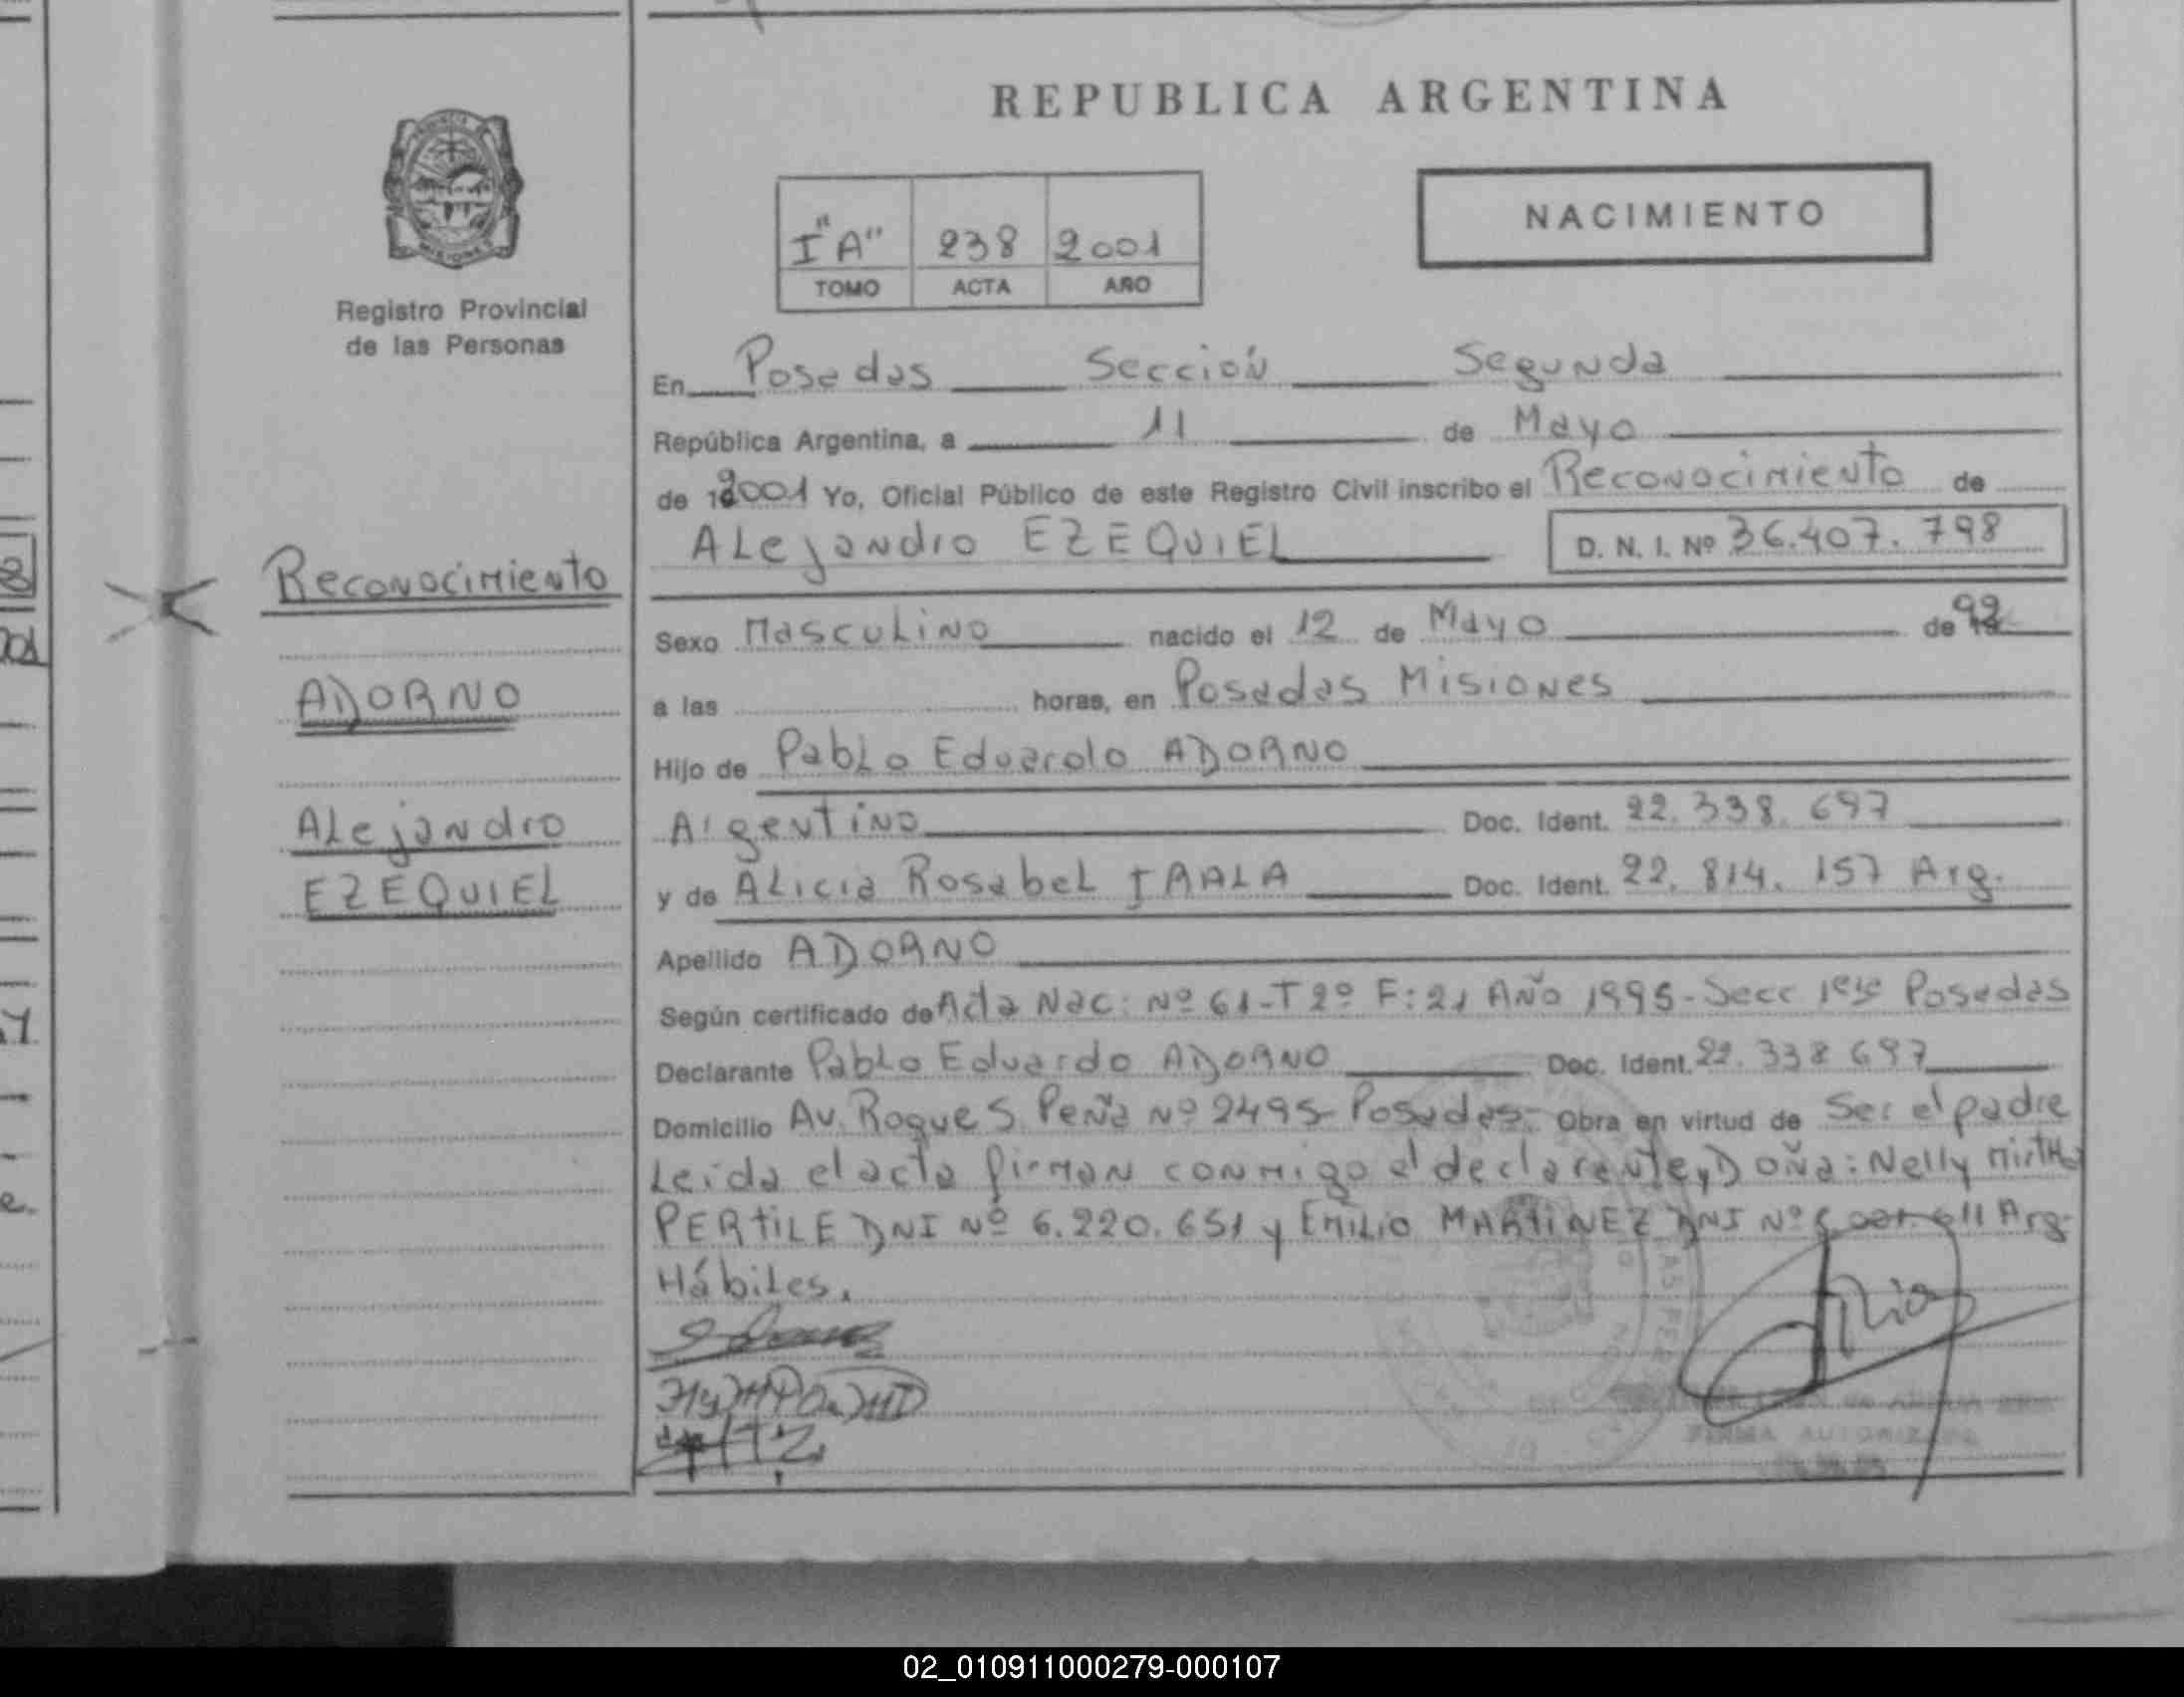 REPUBLICA ARGENTINA
NACIMIENTO
I "A" 238 2001
TOMO ACTA AÑO
Registro Provincial
de las Personas
En Posadas Sección Segunda
República Argentina, a 11 de Mayo
de 2001 Yo, Oficial Público de este Registro Civil inscribo el Reconocimiento de
Alejandro EZEQUIEL D. N. I. Nº 36.407.798
Reconocimiento
ADORNO
Alejandro
EZEQUIEL
Sexo Masculino nacido el 12 de Mayo de 92
a las horas, en Posadas Misiones
Hijo de Pablo Eduardo ADORNO
Argentino Doc. Ident. 22.338.697
y de Alicia Rosabel Doc. Ident. 22.814.157 Arg.
Apellido ADORNO
Según certificado de Acta Nac: Nº 61-T 2º F:21 Año 1995-Secc 1era Posadas
Declarante Pablo Eduardo ADORNO Doc. Ident. 22.338 697
Domicilio Av. Roque S. Peña Nº 2495-Posadas- Obra en virtud de Ser el padre
Leida el acta firman conmigo el declarante, Doña: Nelly Mirtha
PERTILE DNI Nº 6.220.651 y Emilio MARTINEZ DNI Nº Arg.
Hábiles.
FIRMA AUTORIZADA
02_010911000279-000107